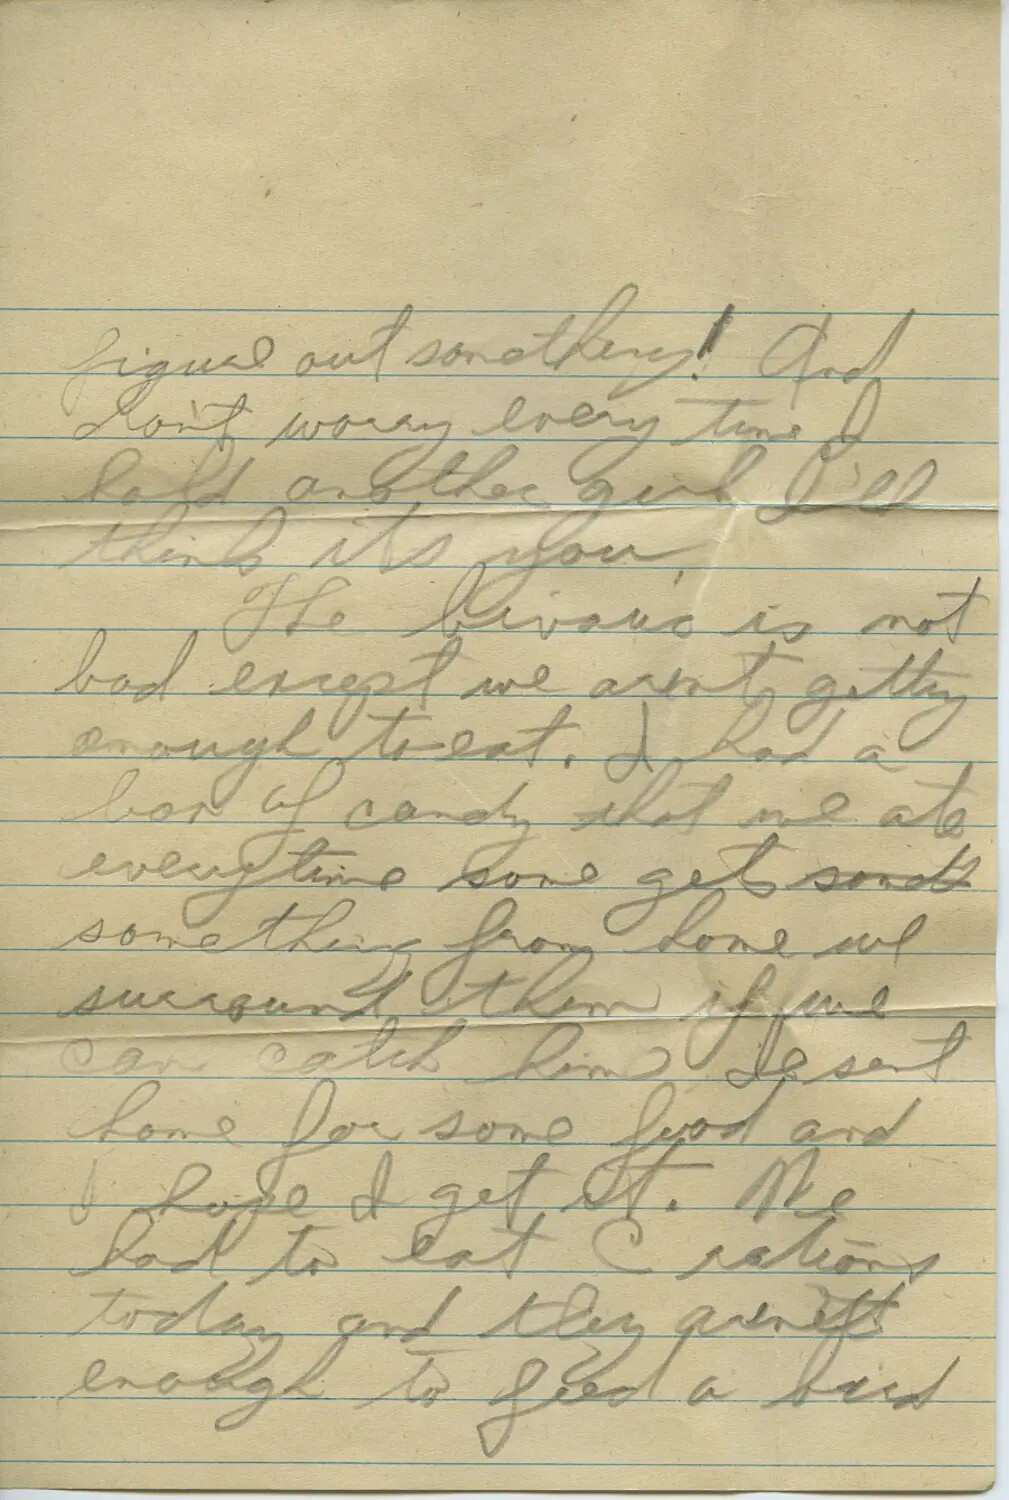 figure out something! And
don't worry every time I
hold another girl I'll
think it's you.
The bivouac is not
bad except we aren't getting
enough to eat. I had a
box of candy that we ate
everytime some gets
something from home we
surround them if we
can catch him I sent
home for some food and
I hope I get it. We
had to eat C rations
today and they aren't
enough to feed a bird